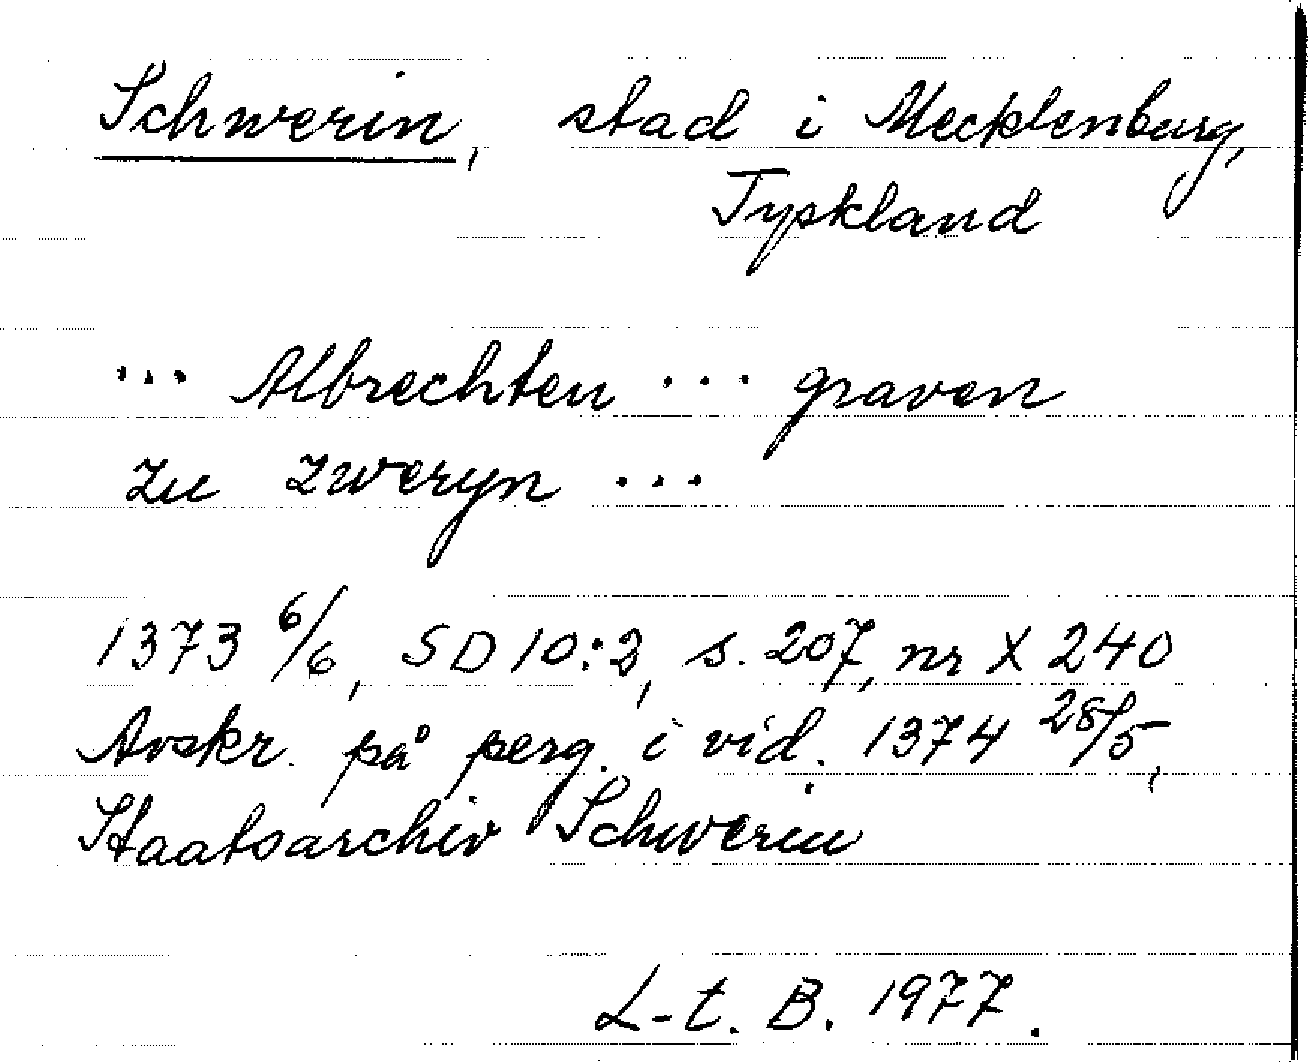 Schwerin, stad i Mecklenburg,
Tyskland
... Albrechten ... graven
zu zweryn ...
1373 6/6, SD 10:2, s. 207, nr X 240
Avskr. på perg. i vid. 1374 28/5,
Staatsarchiv Schwerin
L-t. B. 1977.